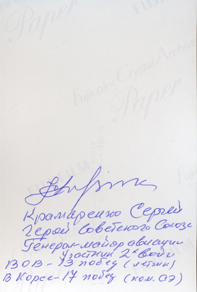 Paper
Крамаренко Сергей
Герой Советского Союза
Генерал-майор авиации
Участник 2х войн
ВОВ - 13 побед (летчик)
В Корее - 17 побед (ком. АЭ)